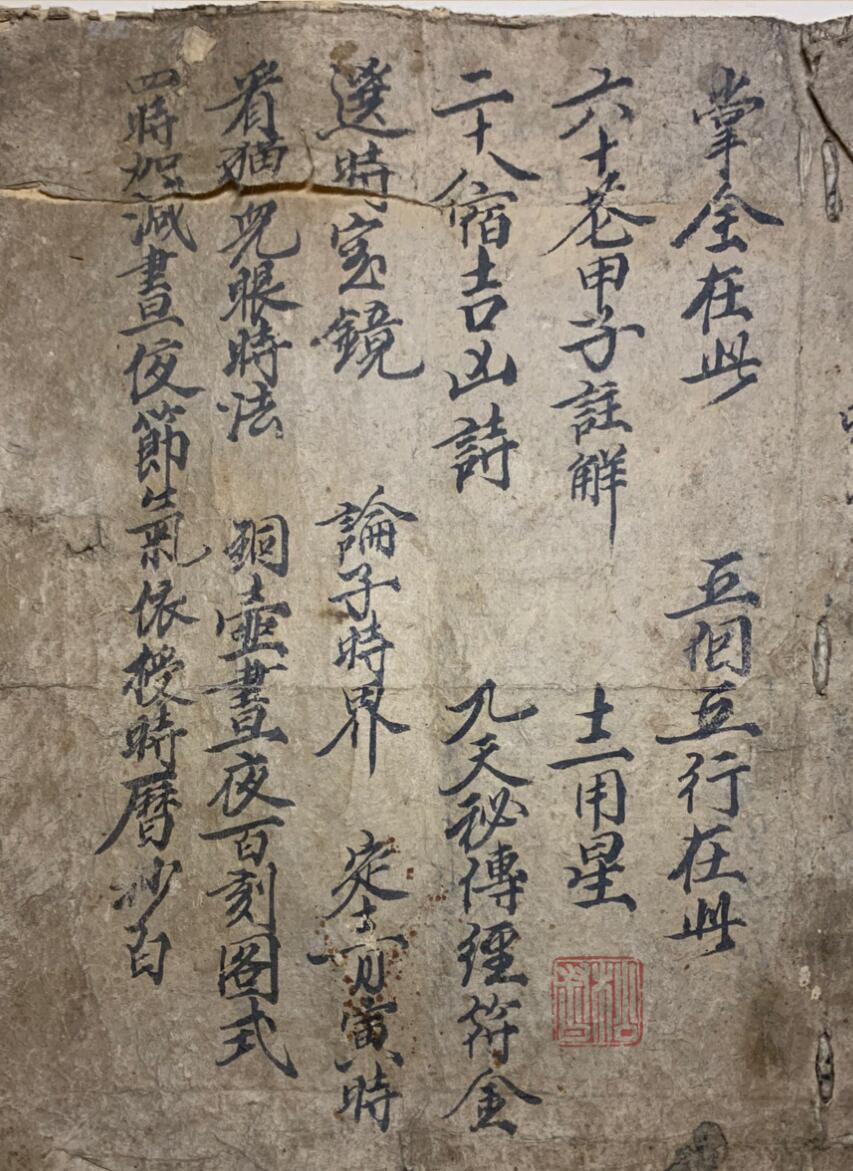 掌全在此 五個五行在此
六十花甲子註解 十二用星
二十八宿吉凶詩 九天秘傳經符金
選時宝鏡 論子時界 定十二月寅時
看猫兒眼時法 銅壺晝夜百刻图式
四時加減晝夜節氣依授時曆抄白